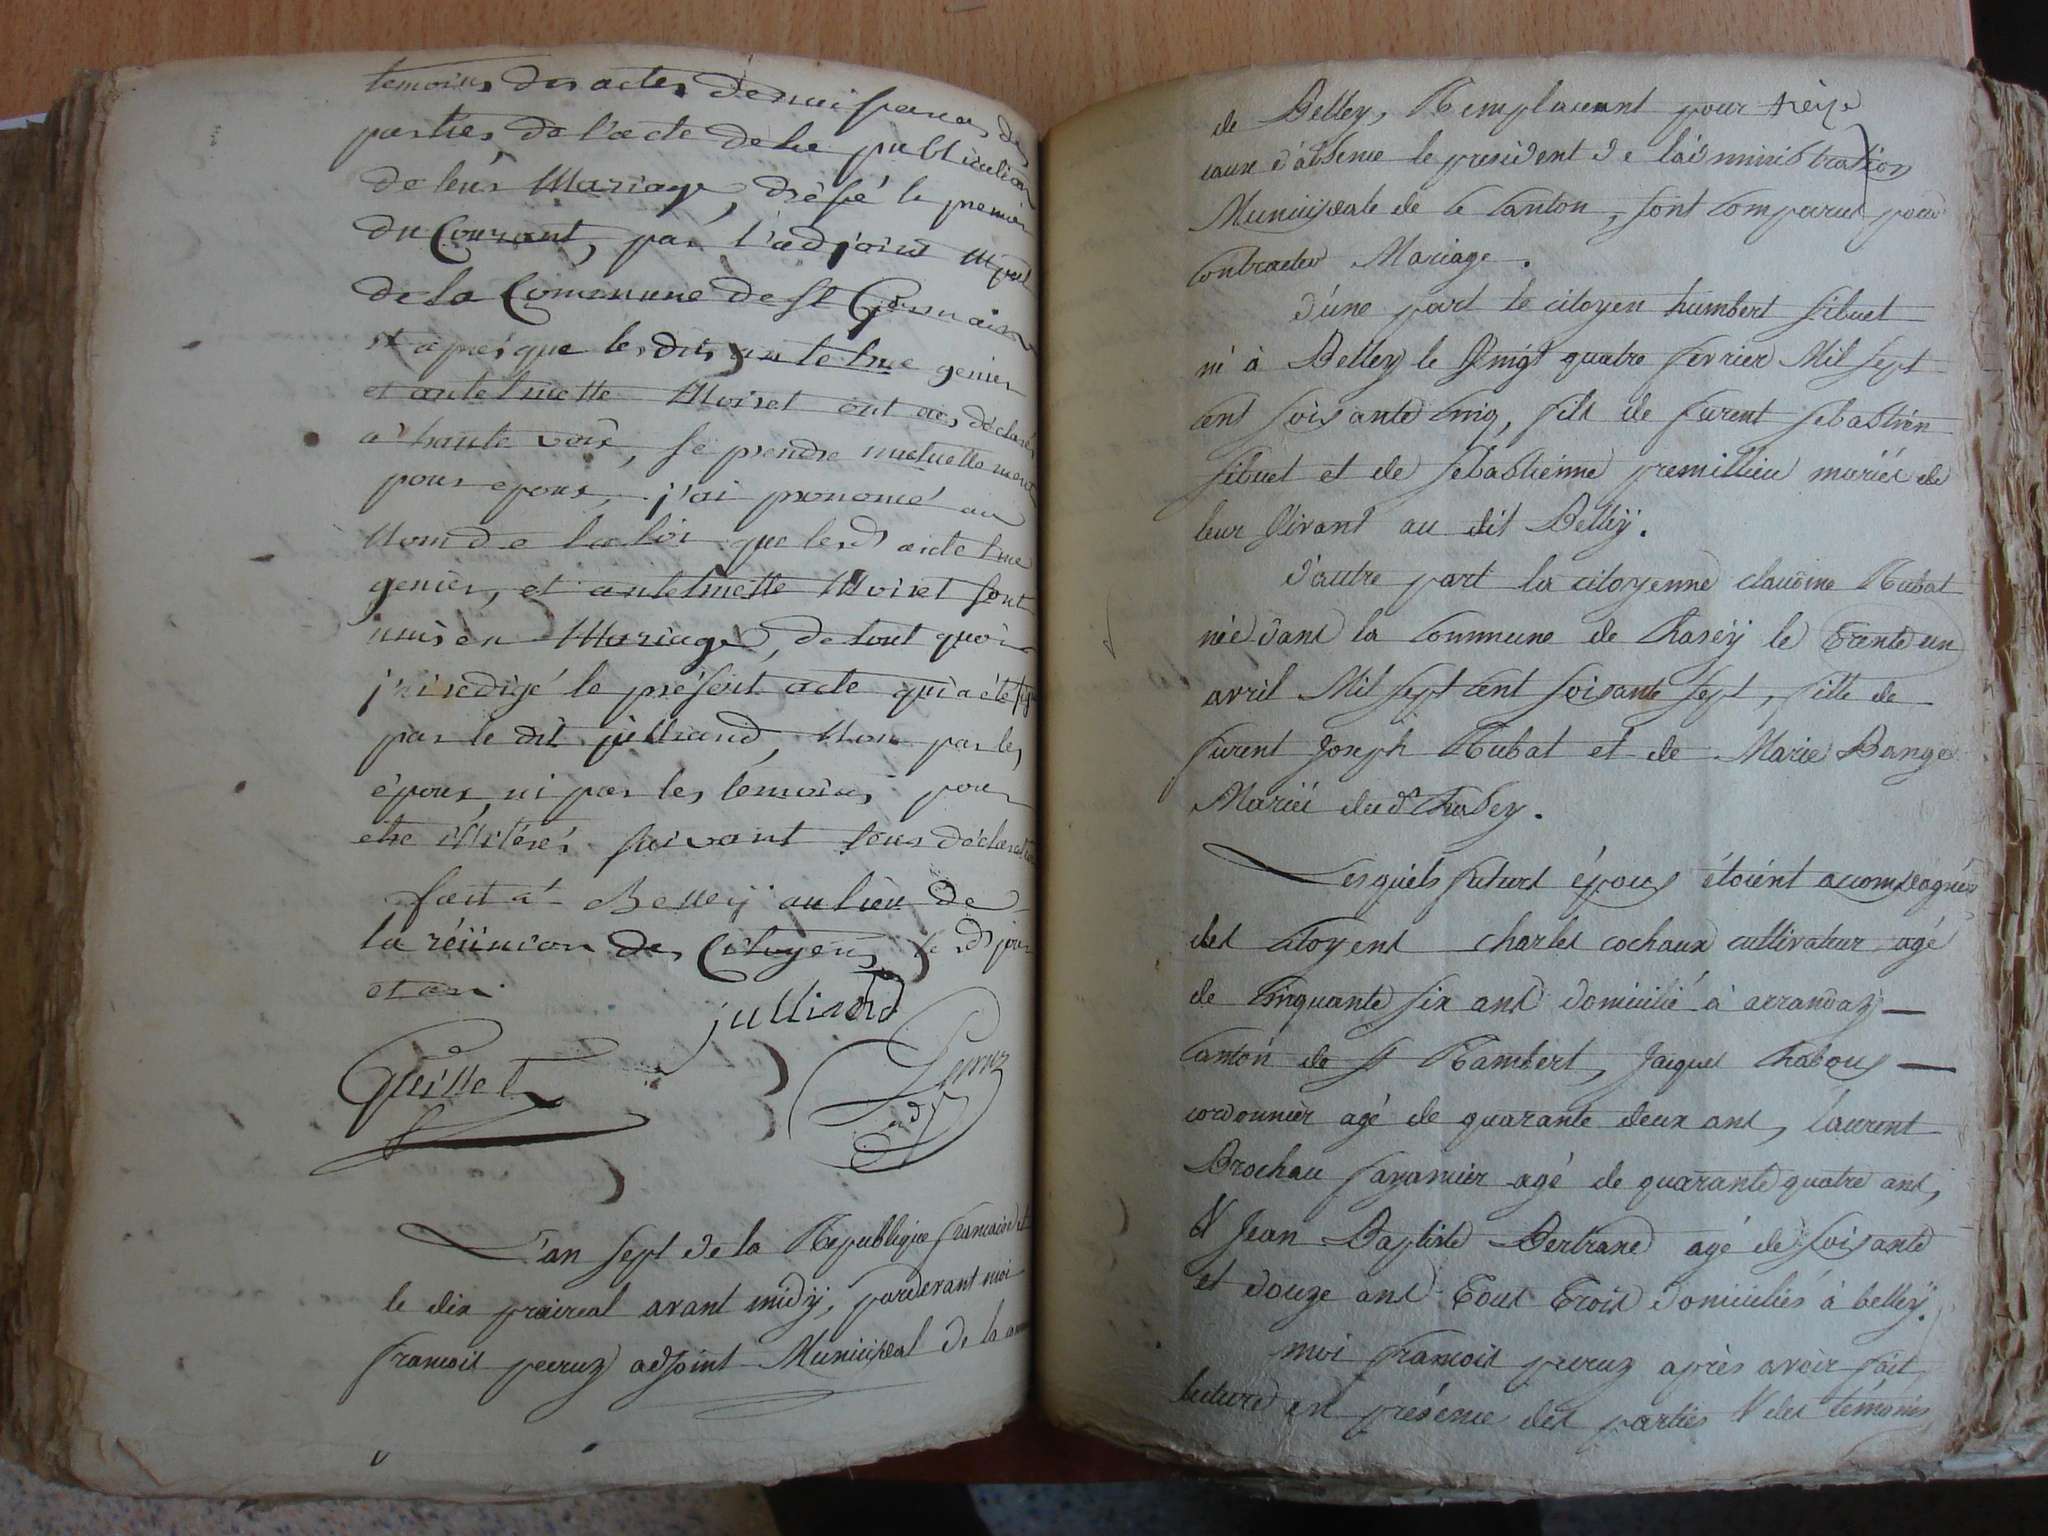 temoins des actes de naissances des
parties de l'acte de la publication
de leur Mariage, dressé le premier
du Courant, par l'adjoint Mpal
de la Commune de St Germain
et apres que lesdits antelme genier
et antelmette Moiret ont eu déclaré
a haute voix, se prendre mutuellement
pour epoux, j'ai prononcé au
Nom de la loi que lesd antelme
genier, et antelmette Moiret sont
unis en Mariage, de tout quoi
j'ai redigé le présent acte qui a été signé
par le dit julliand, Non par les
époux, ni par les témoins pour
etre illitérés suivant leurs déclaration
fait a Belleÿ au lieu de
la réünion des Citoyens le d jour
et an.
julliand
Guillet
Peruz
adjt
L'an sept de la République francaise et
le dix prairial avant midÿ, pardevant moi
francois peruz adjoint Municipal de la
de Belley, Remplacant pour
cause d'absence le president de l'administration
Municipale de ce Canton, sont Comparus pour
Contracter Mariage.
d'une part le citoyen humbert sibuet
né à Belley le Vingt quatre fevrier Mil sept
cent soisante Cinq, fils de furent sebastien
sibuet et de sebastienne premillieu mariés de
leur Vivant au dit Belleÿ.
d'autre part la citoyenne claudine Rubat
née dans la Commune de Chaseÿ le trente un
avril Mil sept cent soisante sept, fille de
furent Joseph Rubat et de Marie Bange
Mariés dud Chasey.
Lesquels futurs époux étoient acompagnés
des Citoyens charles cochaux cultivateur agé
de Cinquante six ans domicilié à arrandaz
Canton de St Rambert, Jacques Chaboux
cordonnier agé de quarante deux ans, laurent
Brochau agé de quarante quatre ans,
& Jean Baptiste Bertrand agé de soisante
et douze ans tous trois domiciliés à belleÿ.
moi francois peruz après avoir fait
lecture en présence des parties & des témoins